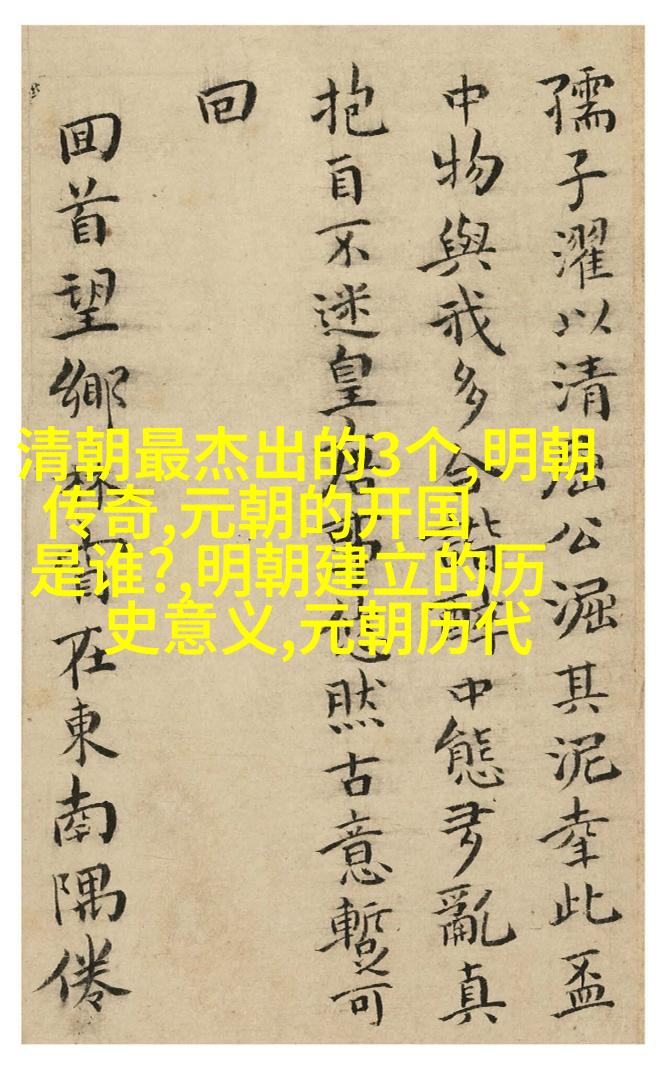 孺子濯以清屈公淈其泥幸此盃
中物與我多醉中態多亂真
抱自不迷皇然古意暫可
回
回首望鄉在東南隅倦
清朝最杰出的3个,明朝
传奇,元朝的开国
是谁?,明朝建立的历
史意义,元朝历代